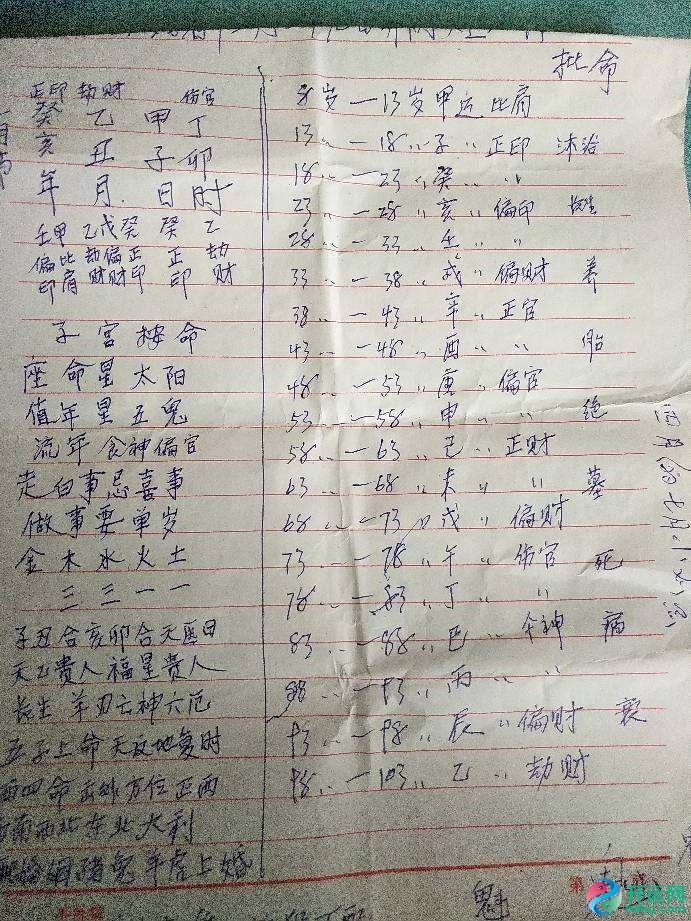 批命
正印 劫财 伤官
癸 乙 甲 丁
亥 丑 子 卯
年 月 日 时
壬甲 乙戊癸 癸 乙
偏比 劫偏正 正 劫
印肩 财财印 印 财
子宫按命
座命星太阳
值年星五鬼
流年食神偏官
走白事忌喜事
做事要单岁
金木水火土
三三一一
子丑合亥卯合天
天乙贵人福星贵人
长生羊刃亡神六厄
五子上命天反地复时
西四命 方位正西
南西北东北大利
婚姻猪兔羊虎上婚
8岁一13岁甲运比肩
13〃一18〃子〃正印 沐浴
18〃一23〃癸〃〃
23〃一28〃亥〃偏印 长生
28〃一33〃壬〃〃
33〃一38〃戌〃偏财 养
38〃一43〃辛〃正官
43〃一48〃酉〃〃 胎
48〃一53〃庚〃偏官
53〃一58〃申〃〃 绝
58〃一63〃己〃正财
63〃一68〃未〃〃 墓
68〃一73〃戊〃偏财
73〃一78〃午〃伤官 死
78〃一83〃丁〃〃
83〃一88〃巳〃食神 病
88〃一93〃丙〃〃
93〃一98〃辰〃偏财 衰
98〃一103〃乙〃劫财
魁
第
开运网